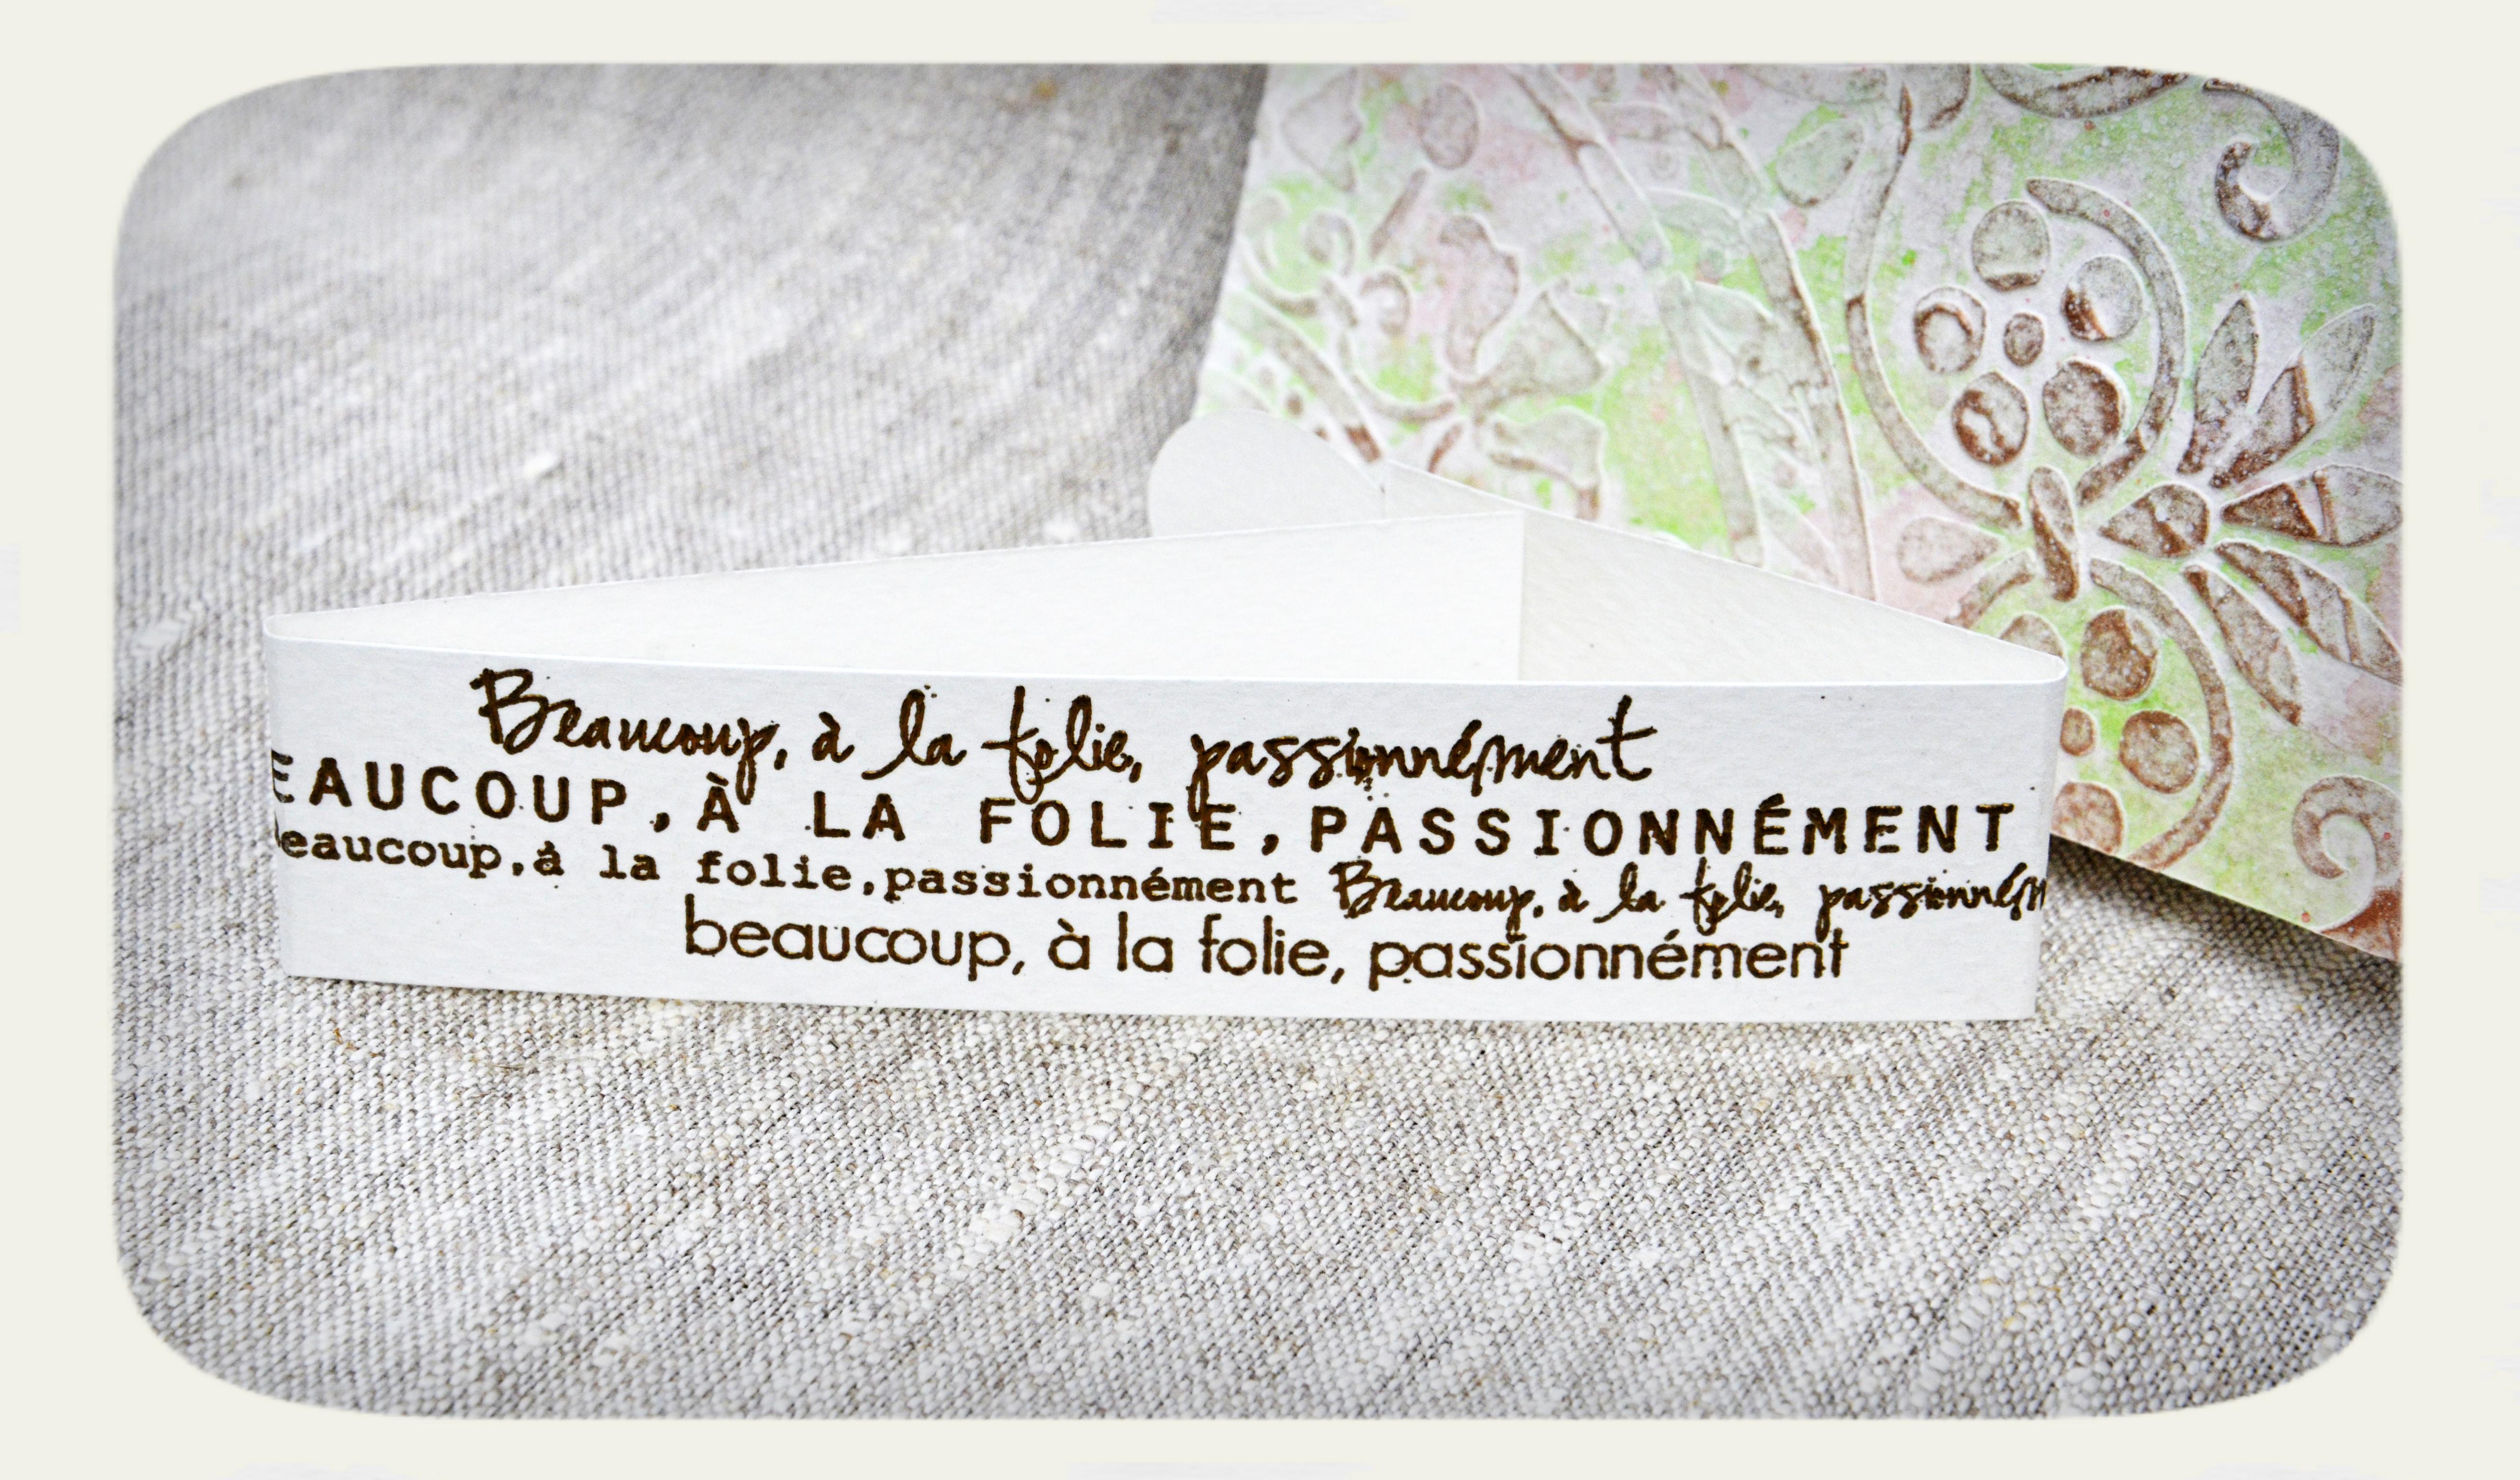 Beaucoup, à la folie, passionnément
EAUCOUP, À LA FOLIE, PASSIONNÉMENT
beaucoup,à la folie,passionnément Beaucoup, à la folie, passionném
beaucoup, à la folie, passionnément